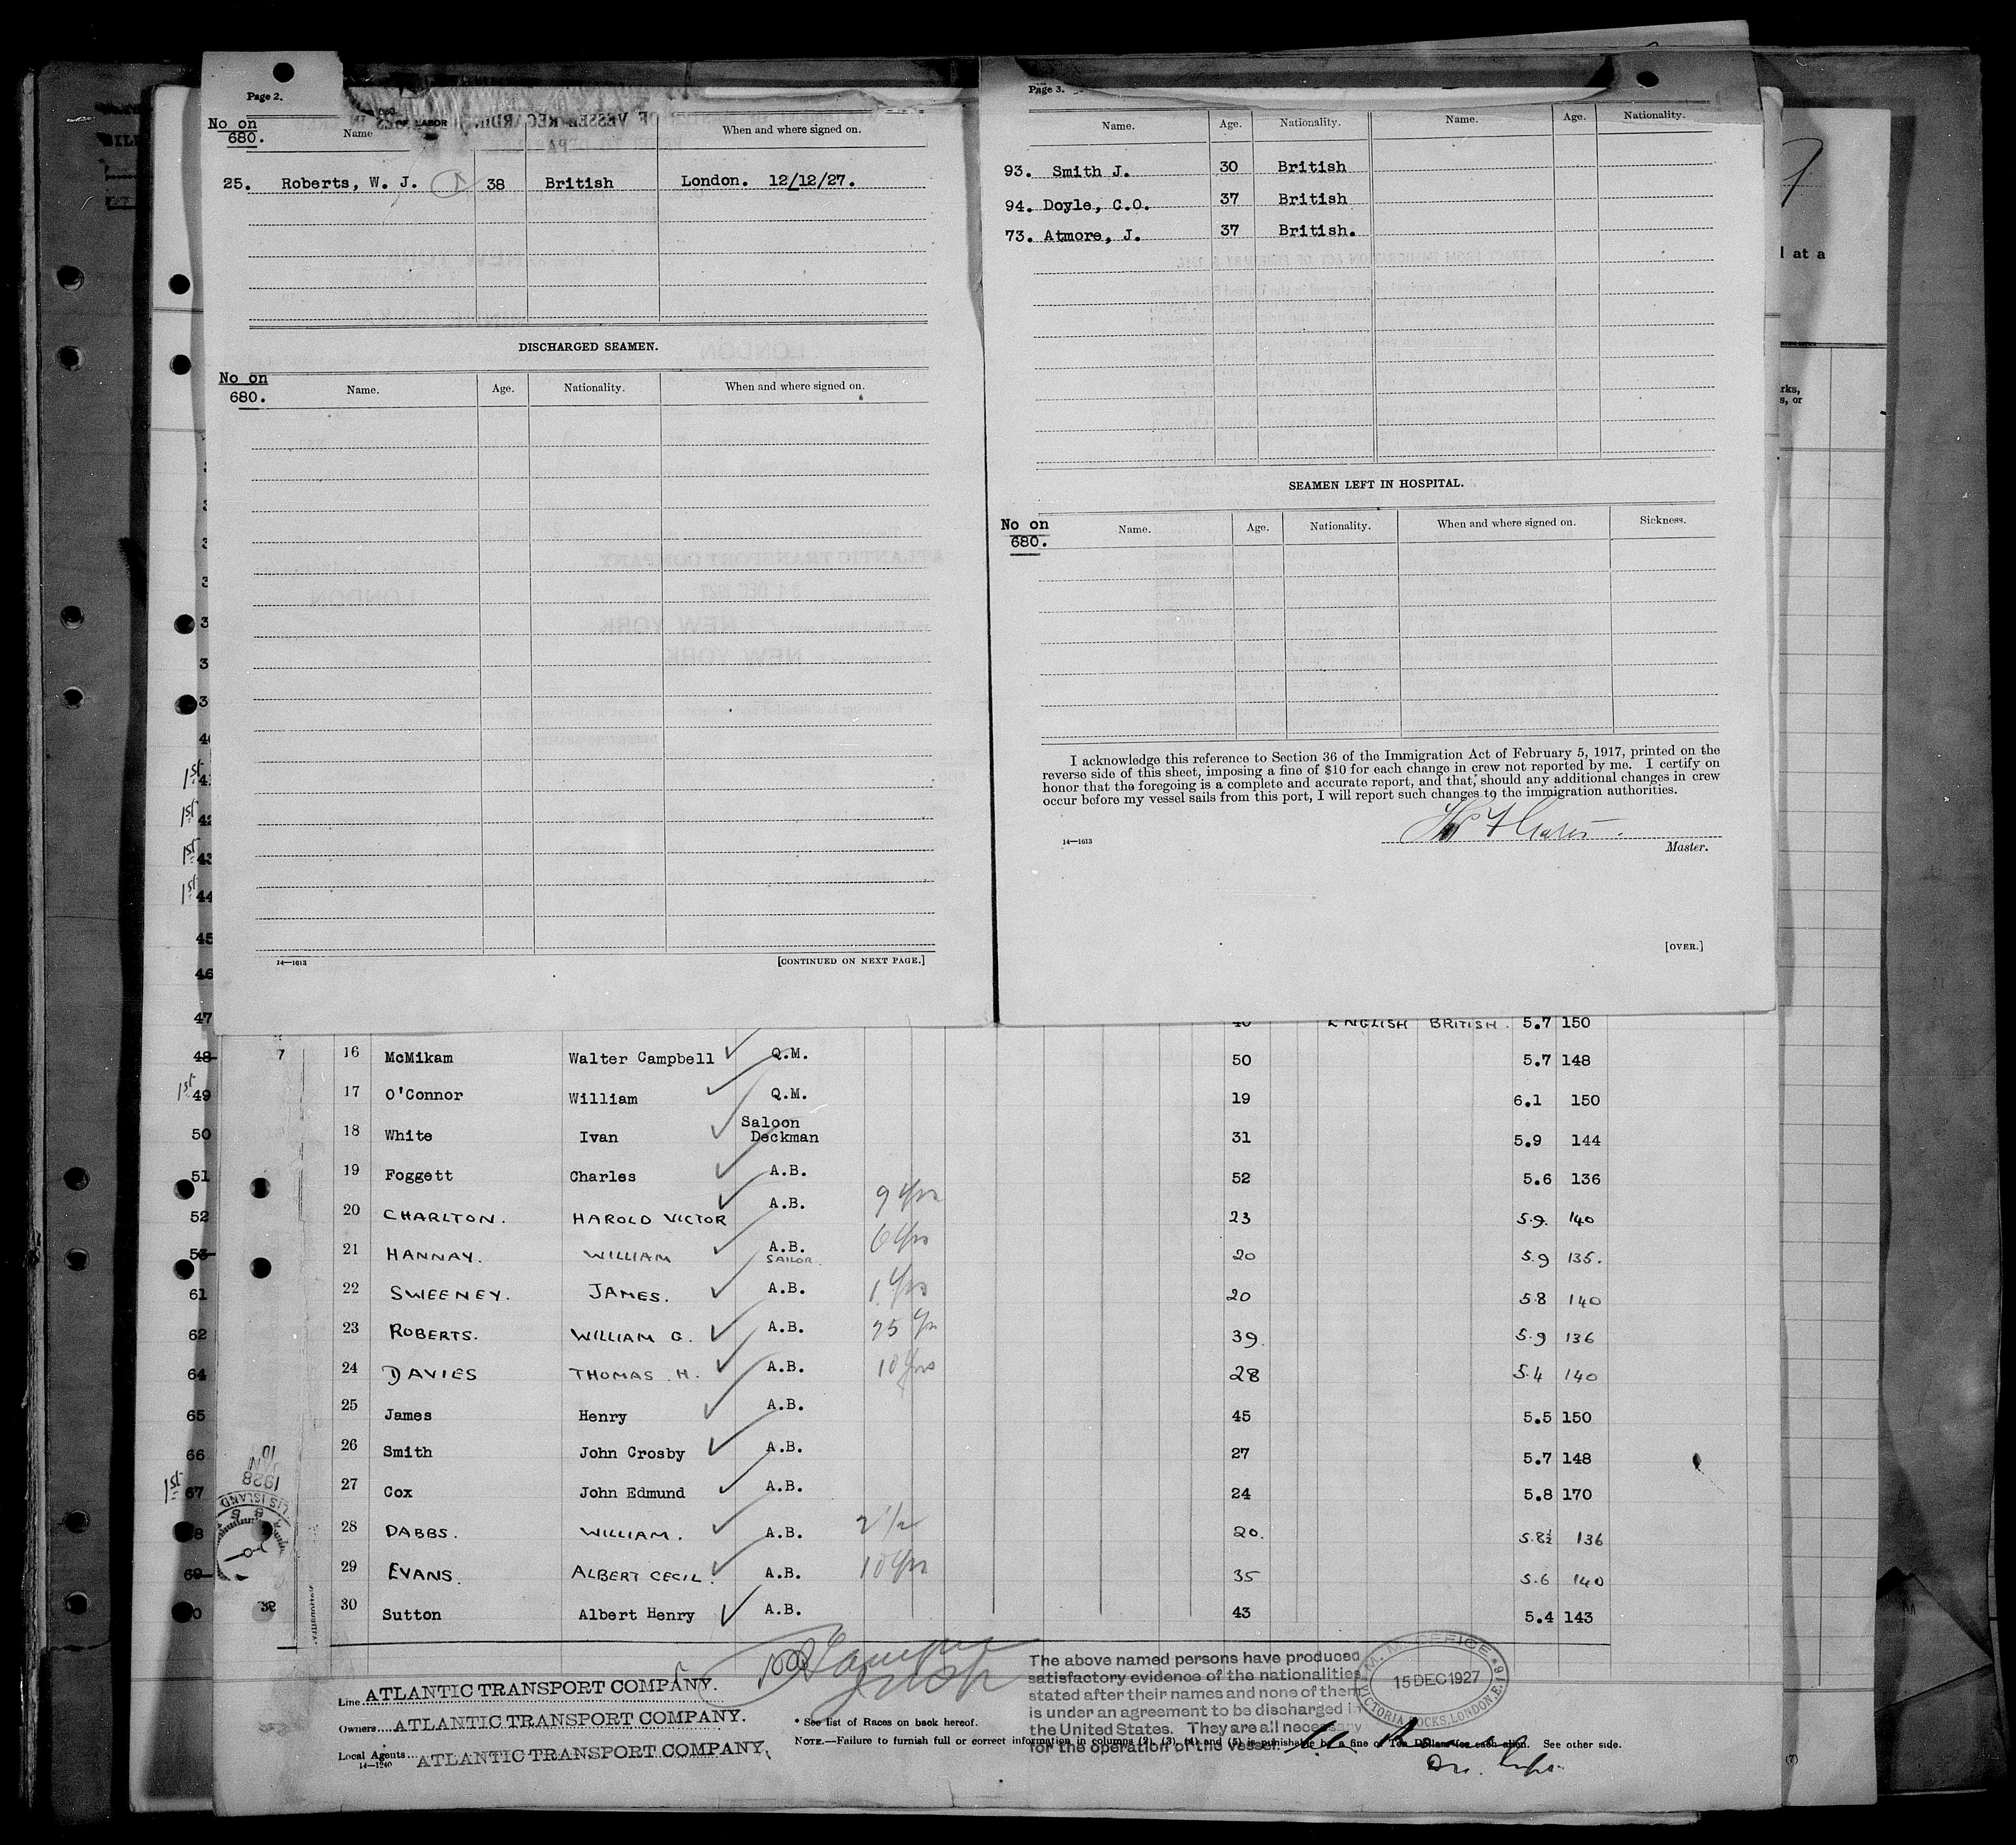 Page 2.
No on 680.
Name
When and where signed on.
25. Roberts, W. J. 38 British London. 12/12/27.
DISCHARGED SEAMEN.
No on 680.
Name. Age. Nationality. When and where signed on.
14—1613 [CONTINUED ON NEXT PAGE.]
Page 3.
Name. Age. Nationality. Name. Age. Nationality.
93. Smith J. 30 British
94. Doyle, C.O. 37 British
73. Atmore, J. 37 British.
SEAMEN LEFT IN HOSPITAL.
No on 680.
Name. Age. Nationality. When and where signed on. Sickness.
I acknowledge this reference to Section 36 of the Immigration Act of February 5, 1917, printed on the
reverse side of this sheet, imposing a fine of $10 for each change in crew not reported by me. I certify on
honor that the foregoing is a complete and accurate report, and that, should any additional changes in crew
occur before my vessel sails from this port, I will report such changes to the immigration authorities.
14—1613
Master.
[OVER.]
ENGLISH BRITISH. 5.7 150
16 McMikam Walter Campbell Q.M. 50 5.7 148
17 O'Connor William Q.M. 19 6.1 150
18 White Ivan Saloon Deckman 31 5.9 144
19 Foggett Charles A.B. 52 5.6 136
20 CHARLTON. HAROLD VICTOR A.B. 9 yrs 23 5.9. 140
21 HANNAY. WILLIAM A.B. SAILOR. 6 yrs 20 5.9 135.
22 SWEENEY. JAMES. A.B. 1 yrs 20 5.8 140
23 ROBERTS. WILLIAM G. A.B. 25 yrs 39. 5.9 136
24 DAVIES THOMAS H. A.B. 10 yrs 28 5.4 140
25 James Henry A.B. 45 5.5 150
26 Smith John Crosby A.B. 27 5.7 148
27 Cox John Edmund A.B. 24 5.8 170
28 DABBS. WILLIAM. A.B. 2 1/2 20. 5.8½ 136
29 EVANS. ALBERT CECIL. A.B. 10 yrs 35 5.6 140
30 Sutton Albert Henry A.B. 43 5.4 143
47
48
1st 49
50
51
52
53
61
62
64
65
66
1st 67
69
Line ATLANTIC TRANSPORT COMPANY.
Owners ATLANTIC TRANSPORT COMPANY.
Local Agents ATLANTIC TRANSPORT COMPANY,
14—1240
* See list of Races on back hereof.
NOTE.—Failure to furnish full or correct information in columns (2), (3), (4) and (5) is punishable by a fine of Ten Dollars for each alien. See other side.
The above named persons have produced
satisfactory evidence of the nationalities
stated after their names and none of them
is under an agreement to be discharged in
the United States. They are all necessary
for the operation of the vessel.
M. M. OFFICE
15 DEC 1927
VICTORIA DOCKS, LONDON, E.16